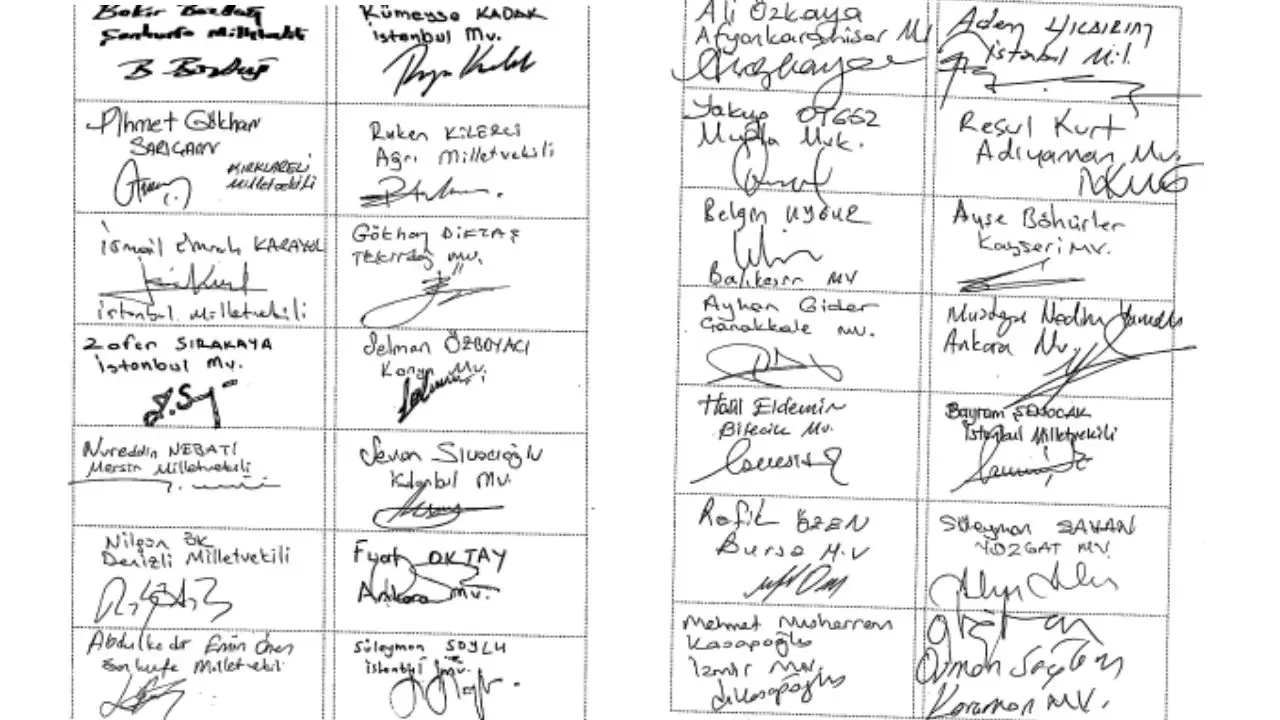 Bekir Bozdağ
Şanlıurfa Milletvekili
B Bozdağ
Rümeysa KADAK
İstanbul Mv.
Ahmet Gökhan
SARIÇAM
KIRKLARELİ
Milletvekili
Ruken KİLERCİ
Ağrı Milletvekili
İsmail Emrah KARAYEL
İstanbul Milletvekili
Gökhan DİKTAŞ
TEKİRDAĞ MV.
Zafer SIRAKAYA
İstanbul Mv.
Selman ÖZBOYACI
Konya Mv.
Nureddin NEBATİ
Mersin Milletvekili
Sevan Sıvacıoğlu
İstanbul Mv.
Nilgün ÖK
Denizli Milletvekili
Fuat OKTAY
Ankara Mv.
Abdulkadir Emin Önen
Şanlıurfa Milletvekili
Süleyman SOYLU
İstanbul Mv.
Ali Özkaya
Afyonkarahisar Mv
Aden YILDIRIM
İstanbul Mil.
Yakup OTGÖZ
Muğla Mvk.
Resul Kurt
Adıyaman Mv.
Belgin UYGUR
Balıkesir MV
Ayşe Böhürler
Kayseri MV.
Ayhan Gider
Çanakkale MV.
Murat
Ankara Mv.
Halil Eldemir
Bilecik Mv.
Bayram ŞENOCAK
İstanbul Milletvekili
Refik ÖZEN
Bursa M.V
Süleyman ŞAHAN
YOZGAT MV.
Mehmet Muharrem
Kasapoğlu
İzmir Mv.
Osman Sağlam
Karaman MV.